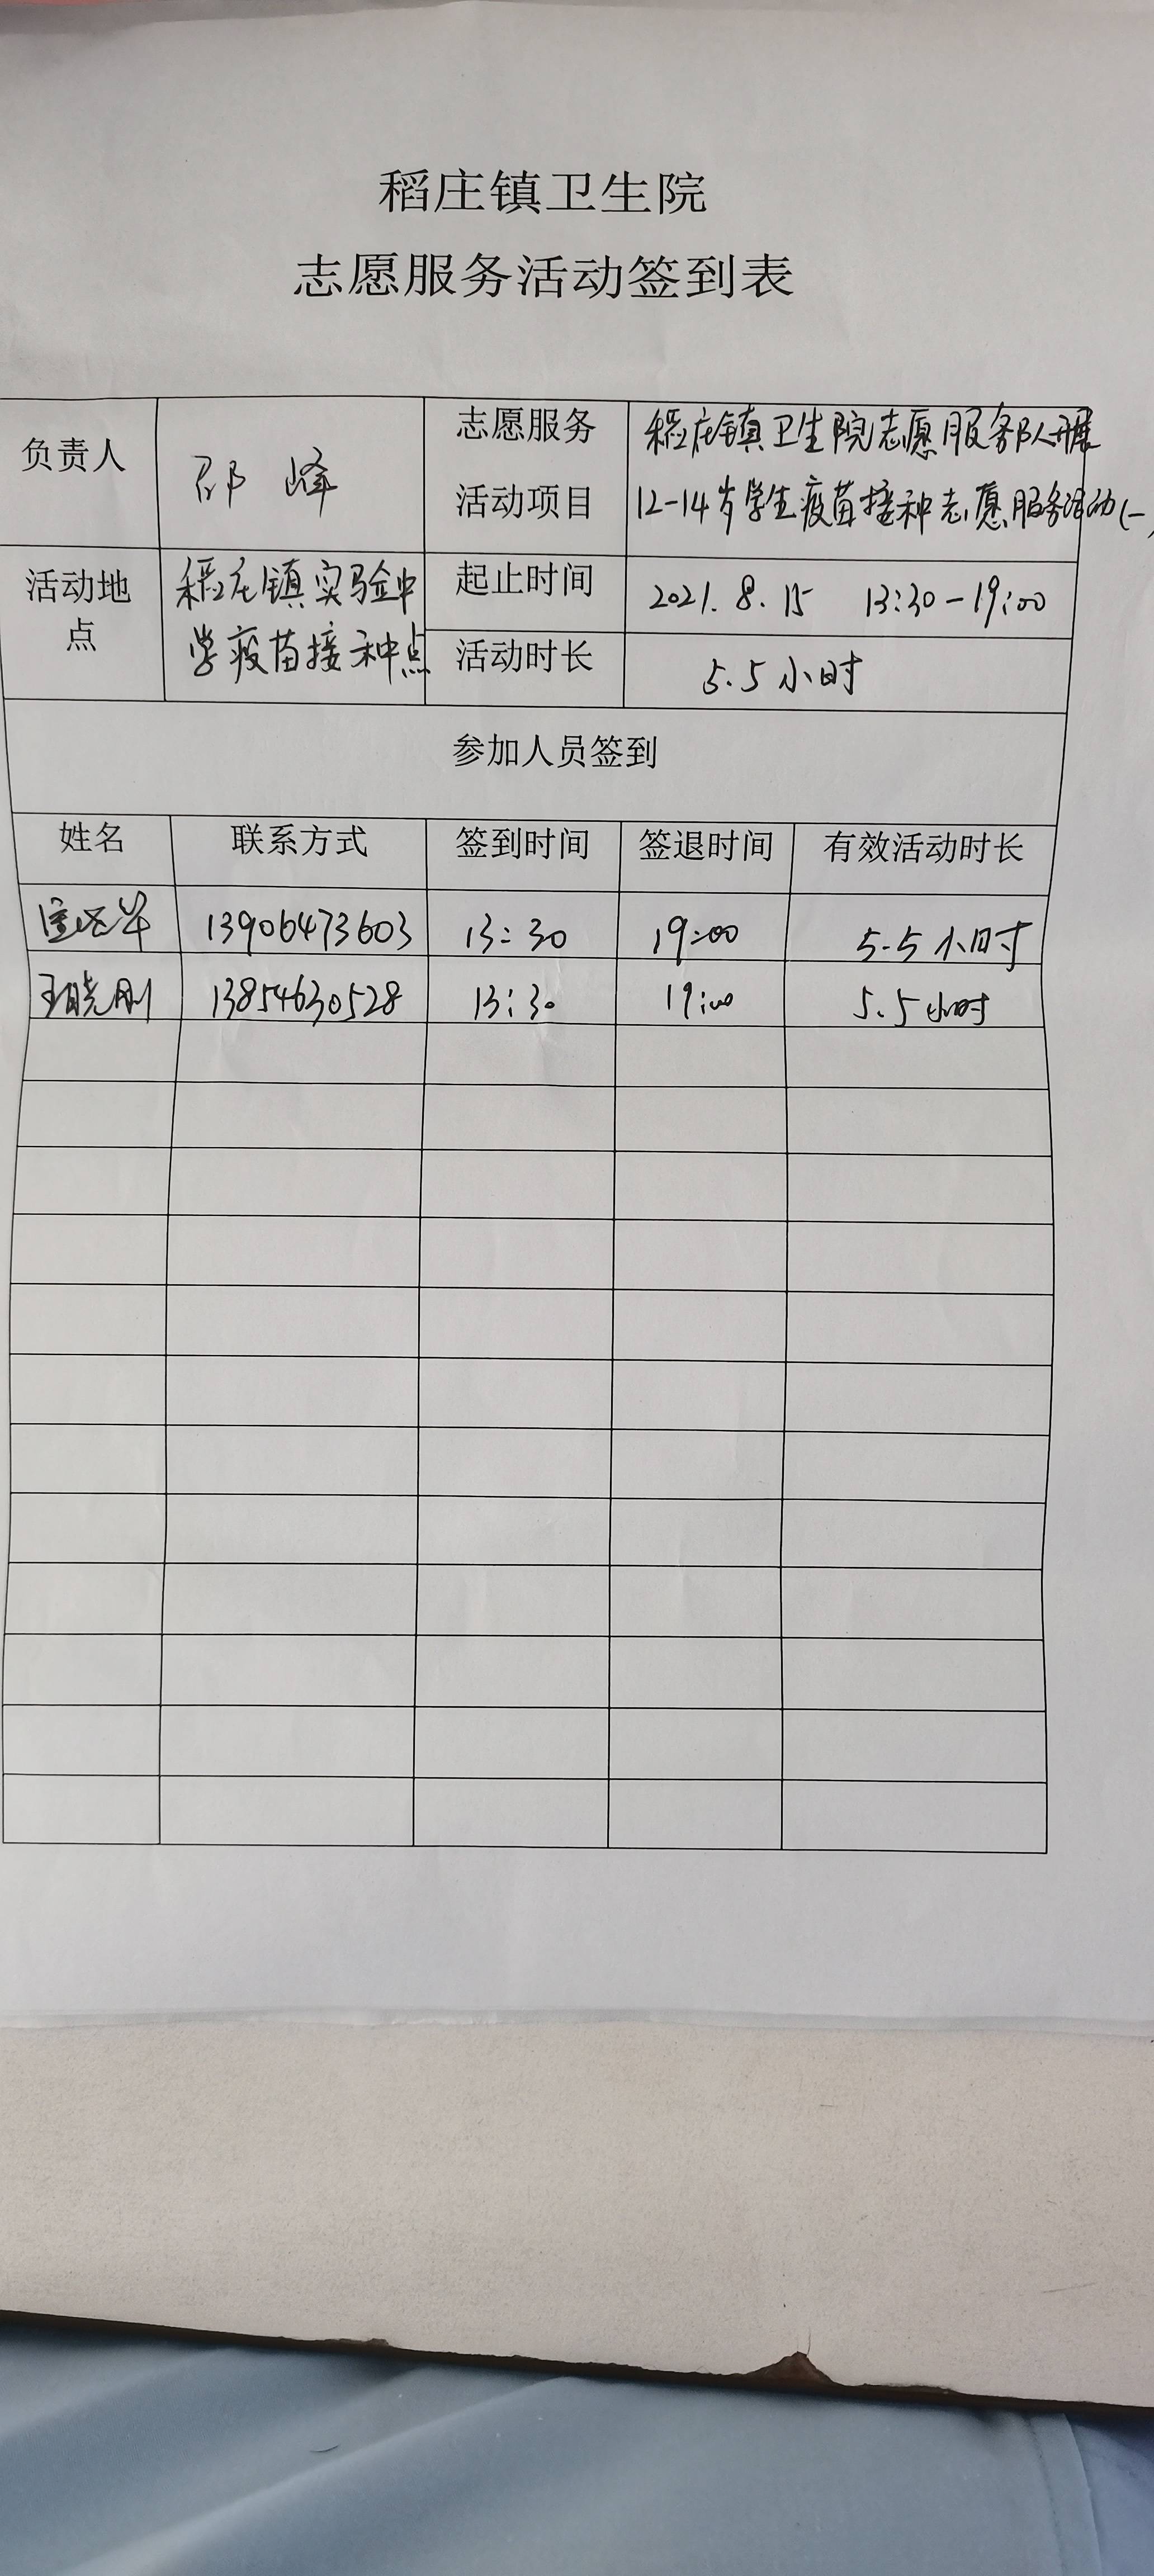 稻庄镇卫生院
志愿服务活动签到表
负责人
峰
志愿服务
活动项目
稻庄镇卫生院志愿服务队开展
12-14岁学生疫苗接种志愿服务活动(一)
活动地
点
稻庄镇实验中
学疫苗接种点
起止时间
2021.8.15 13:30-19:00
活动时长
5.5小时
参加人员签到
姓名 联系方式 签到时间 签退时间 有效活动时长
13906473603 13:30 19:00 5.5小时
王晓刚 13854630528 13:30 19:00 5.5小时